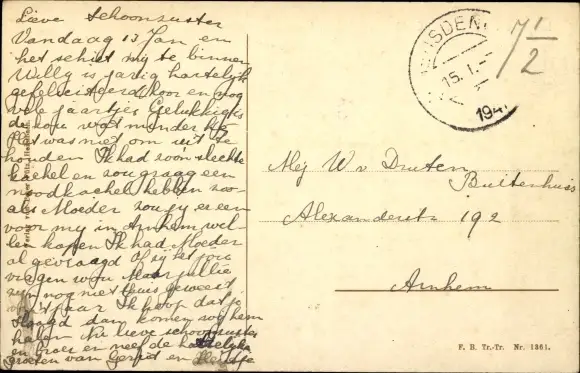 Lieve Schoonzuster
Vandaag 13 Jan en
het schiet my te binnen
Willy is jarig hartelyk
gefeliciteerd hoor en nog
vele jaartjes Gelukkig is
de kou wat minder
Het was niet om uit te
houden Ik had zoon slechte
kachel en zou graag een
noodkachel hebben zoo
als Moeder zou jy er een
voor my in Arnhem wil-
len koopen Ik had Moeder
al gevraagd of zy het jou
vragen wou Maar jullie
zyn nog niet thuis geweest
Ik hoop dat je
slaagd dan komen wy hem
halen Nu lieve schoonzuster
en Groes en neef de hartelyke
groeten van Gerrit en
HEUSDEN
15.1.
194
7 1/2
Mej W v Druten
Buitenhuis
Alexanderstr 192
Arnhem
F. B. Tr.-Tr. Nr. 1361.